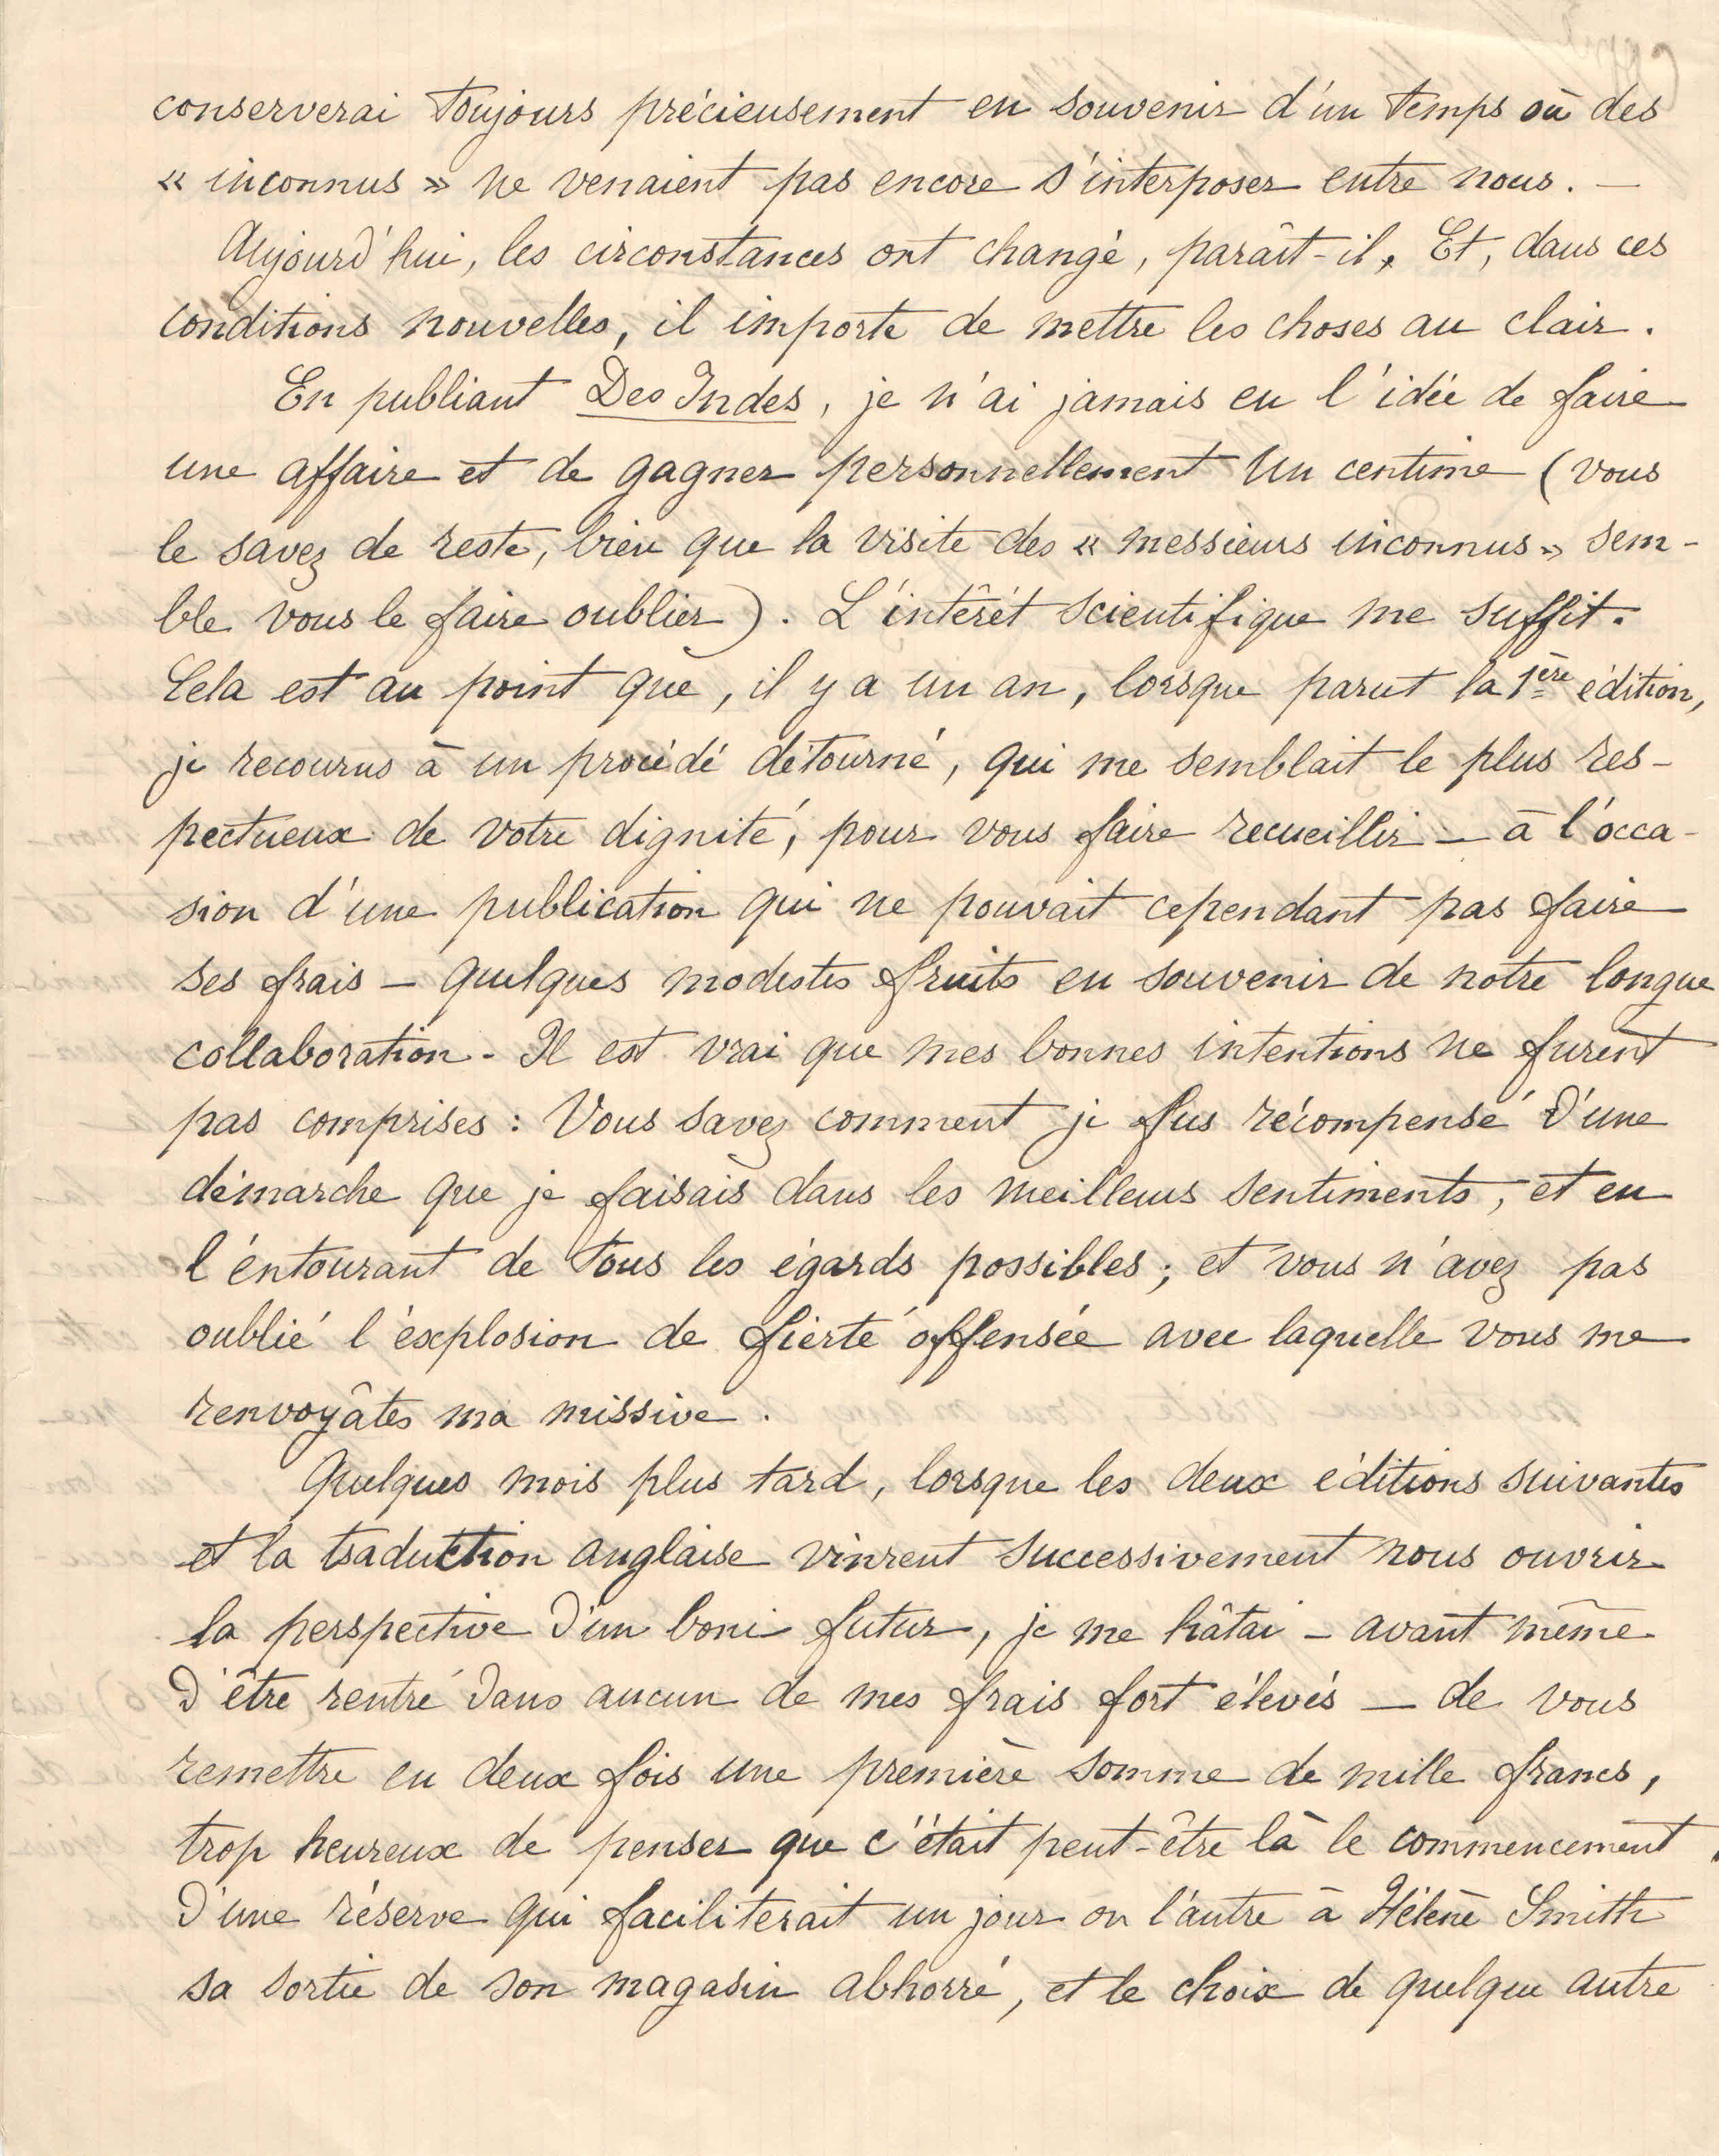 conserverai toujours précieusement en souvenir d'un temps où des
« inconnus » ne venaient pas encore s'interposer entre nous. —
Aujourd'hui, les circonstances ont changé, paraît-il. Et, dans ces
conditions nouvelles, il importe de mettre les choses au clair.
En publiant Des Indes, je n'ai jamais eu l'idée de faire
une affaire et de gagner personnellement un centime (vous
le savez de reste, bien que la visite des « messieurs inconnus » sem-
ble vous le faire oublier). L'intérêt scientifique me suffit.
Cela est au point que, il y a un an, lorsque parut la 1ère édition,
je recourus à un procédé détourné, qui me semblait le plus res-
pectueux de votre dignité, pour vous faire recueillir — à l'occa-
sion d'une publication qui ne pouvait cependant pas faire
ses frais — quelques modestes fruits en souvenir de notre longue
collaboration. Il est vrai que mes bonnes intentions ne furent
pas comprises : Vous savez comment je fus récompensé d'une
démarche que je faisais dans les meilleurs sentiments, et en
l'entourant de tous les égards possibles ; et vous n'avez pas
oublié l'explosion de fierté offensée avec laquelle vous me
renvoyâtes ma missive.
Quelques mois plus tard, lorsque les deux éditions suivantes
et la traduction anglaise vinrent successivement nous ouvrir
la perspective d'un boni futur, je me hâtai — avant même
d'être rentré dans aucun de mes frais fort élevés — de vous
remettre en deux fois une première somme de mille francs,
trop heureux de penser que c'était peut-être là le commencement
d'une réserve qui faciliterait un jour ou l'autre à Hélène Smith
sa sortie de son magasin abhorré, et le choix de quelque autre